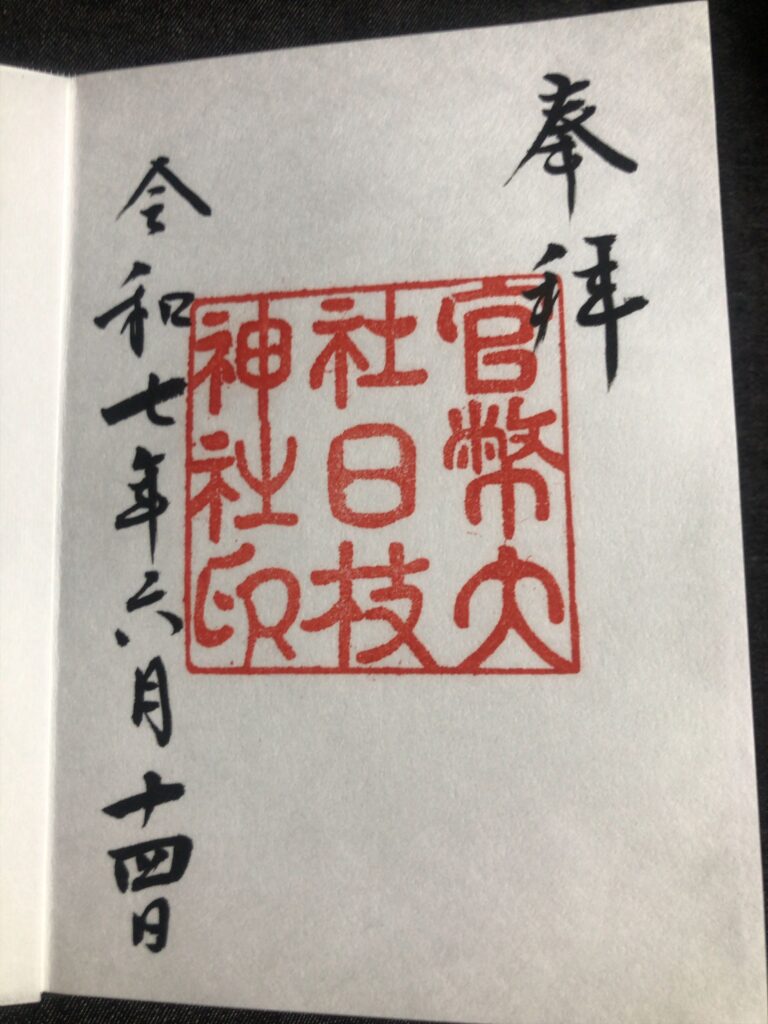 奉拝
官幣大
社日枝
神社印
令和七年六月十四日